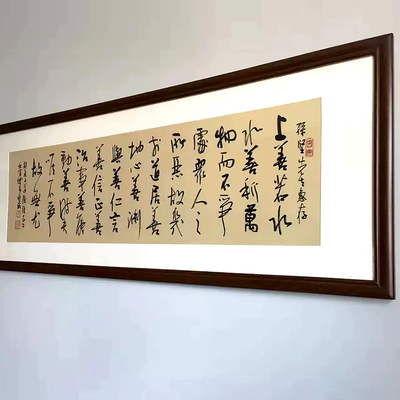 先生惠存
上善若水
水善利萬
物而不爭
處眾人之
所惡故幾
於道居善
地心善淵
與善仁言
善信正善
治事善能
動善時夫
唯不爭
故無尤